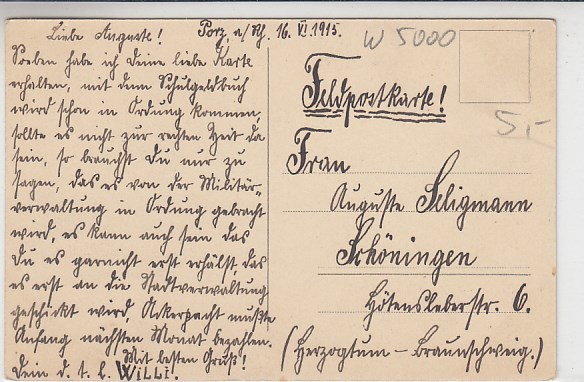 Liebe Auguste! Porz a/Rh. 16. VI. 1915.
Soeben habe ich Deine liebe Karte
erhalten, mit dem Schulgeldbuch
wird schon in Ordung kommen,
sollte es nicht zur rechten Zeit da
sein, so brauchst Du nur zu
sagen, das es von der Militär-
verwaltung in Ordung gebracht
wird, es kann auch sein das
Du es garnicht erst erhälst, das
es erst an die Stadtverwaltung
geschickt wird, Ackerpacht mußte
Anfang nächsten Monat bezahlen.
Mit besten Gruß!
Dein d. t. l. WILLI.
W 5000
5,-
Feldpostkarte!
Frau
Auguste Seligmann
Schöningen
Hötensleberstr. 6.
(Herzogtum - Braunschweig.)